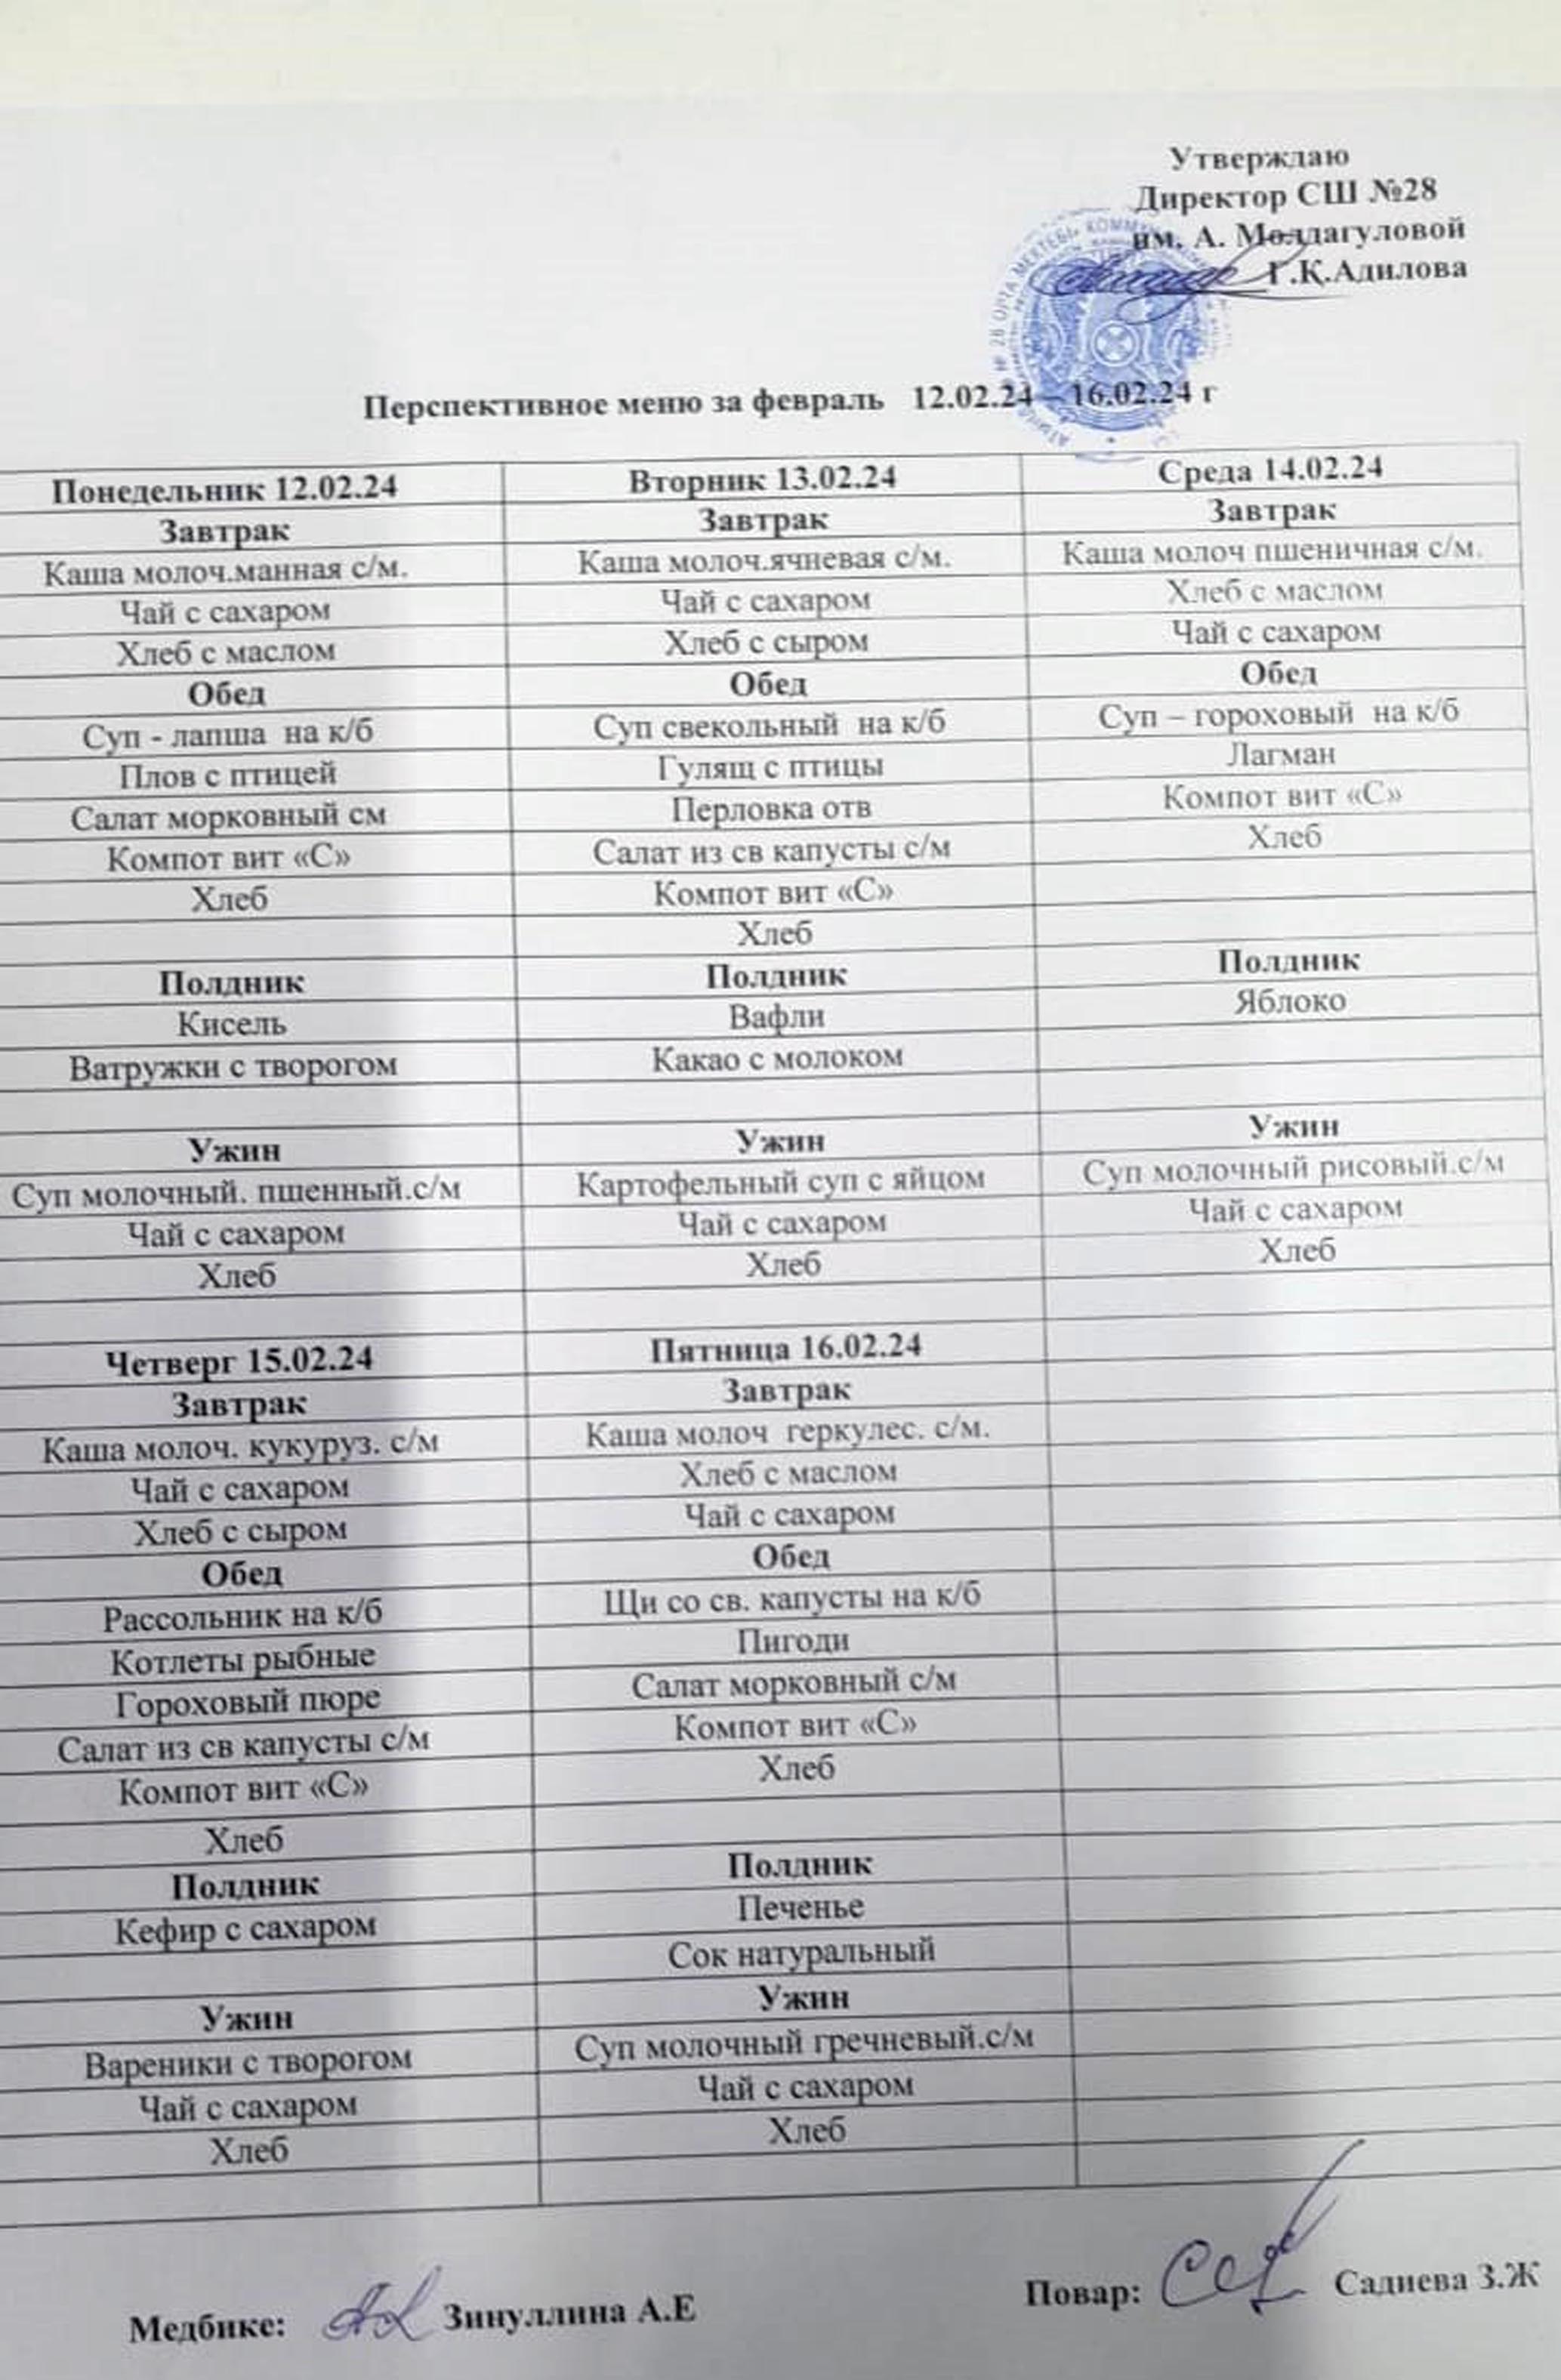 Утверждаю
Директор СШ №28
им. А. Молдагуловой
Г.Қ.Адилова
№ 28 ОРТА МЕКТЕБІ
Перспективное меню за февраль 12.02.24 – 16.02.24 г
Понедельник 12.02.24 Вторник 13.02.24 Среда 14.02.24
Завтрак Завтрак Завтрак
Каша молоч.манная с/м. Каша молоч.ячневая с/м. Каша молоч пшеничная с/м.
Чай с сахаром Чай с сахаром Хлеб с маслом
Хлеб с маслом Хлеб с сыром Чай с сахаром
Обед Обед Обед
Суп - лапша на к/б Суп свекольный на к/б Суп – гороховый на к/б
Плов с птицей Гулящ с птицы Лагман
Салат морковный см Перловка отв Компот вит «С»
Компот вит «С» Салат из св капусты с/м Хлеб
Хлеб Компот вит «С»
Хлеб
Полдник Полдник Полдник
Кисель Вафли Яблоко
Ватружки с творогом Какао с молоком
Ужин Ужин Ужин
Суп молочный. пшенный.с/м Картофельный суп с яйцом Суп молочный рисовый.с/м
Чай с сахаром Чай с сахаром Чай с сахаром
Хлеб Хлеб Хлеб
Четверг 15.02.24 Пятница 16.02.24
Завтрак Завтрак
Каша молоч. кукуруз. с/м Каша молоч геркулес. с/м.
Чай с сахаром Хлеб с маслом
Хлеб с сыром Чай с сахаром
Обед Обед
Рассольник на к/б Щи со св. капусты на к/б
Котлеты рыбные Пигоди
Гороховый пюре Салат морковный с/м
Салат из св капусты с/м Компот вит «С»
Компот вит «С» Хлеб
Хлеб
Полдник Полдник
Кефир с сахаром Печенье
Сок натуральный
Ужин Ужин
Вареники с творогом Суп молочный гречневый.с/м
Чай с сахаром Чай с сахаром
Хлеб Хлеб
Медбике: Зинуллина А.Е Повар: Садиева З.Ж